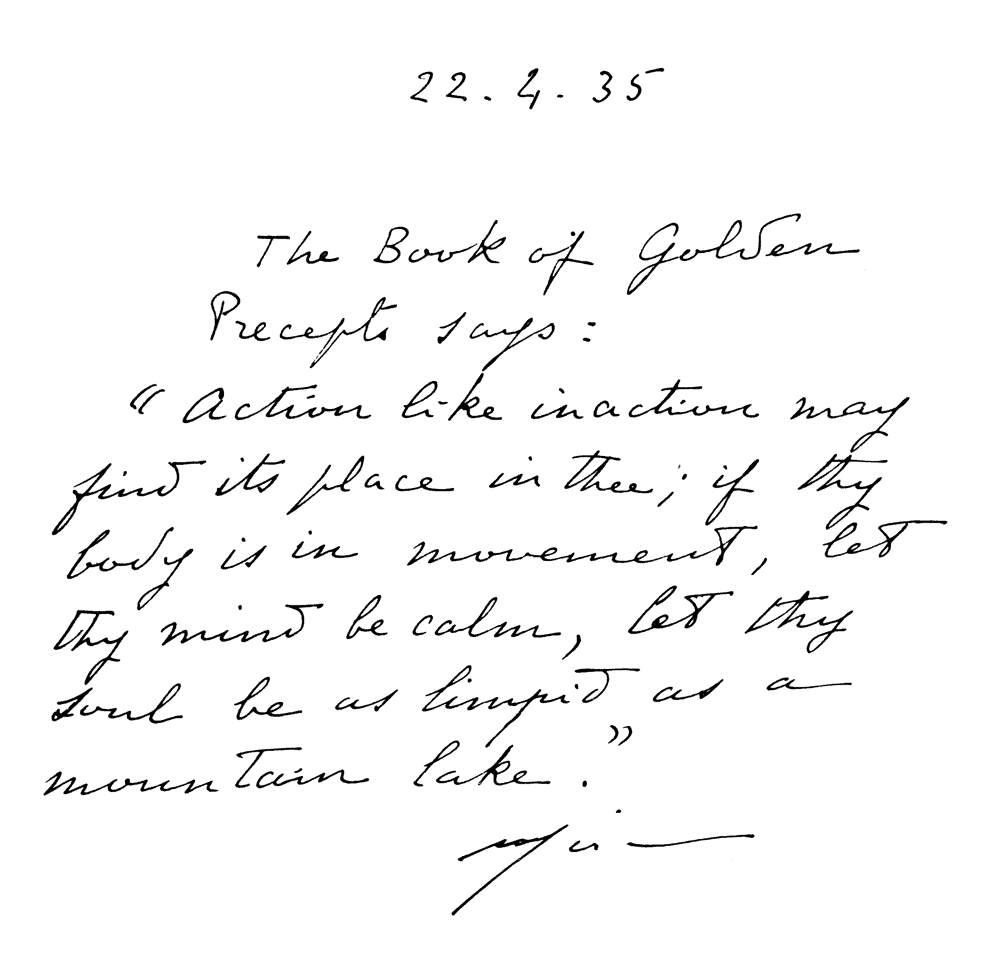 22.4.35
The Book of Golden
Precepts says:
"Action like inaction may
find its place in thee; if thy
body is in movement, let
thy mind be calm, let thy
soul be as limpid as a
mountain lake."